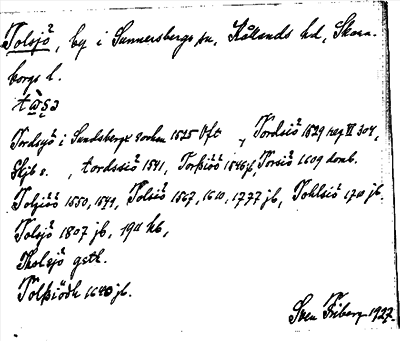 Tolsjö, by i Sunnersbergs sn, Kålands hd, Skara-
borgs l.
Tordsyö i Sundsberga sokn 1525 Vft, Tordsiö 1529
Skjb 2. , tordssiö 1541, Torþiöö 1546 jb, Torsiö 1609 domb.
Toljiöö 1550, 1544, Tolsiö 1567, 1610, 1777 jb, Tohlsiö 1711 jb.
Tolsjö 1807 jb, 1911 kb,
Tholsjö gstk.
Tolþiödh 1640 jb.
Sven Friberg 1927.